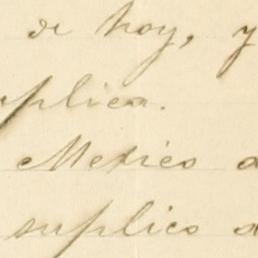 de hoy, y
suplica.
Mexico a
suplico a